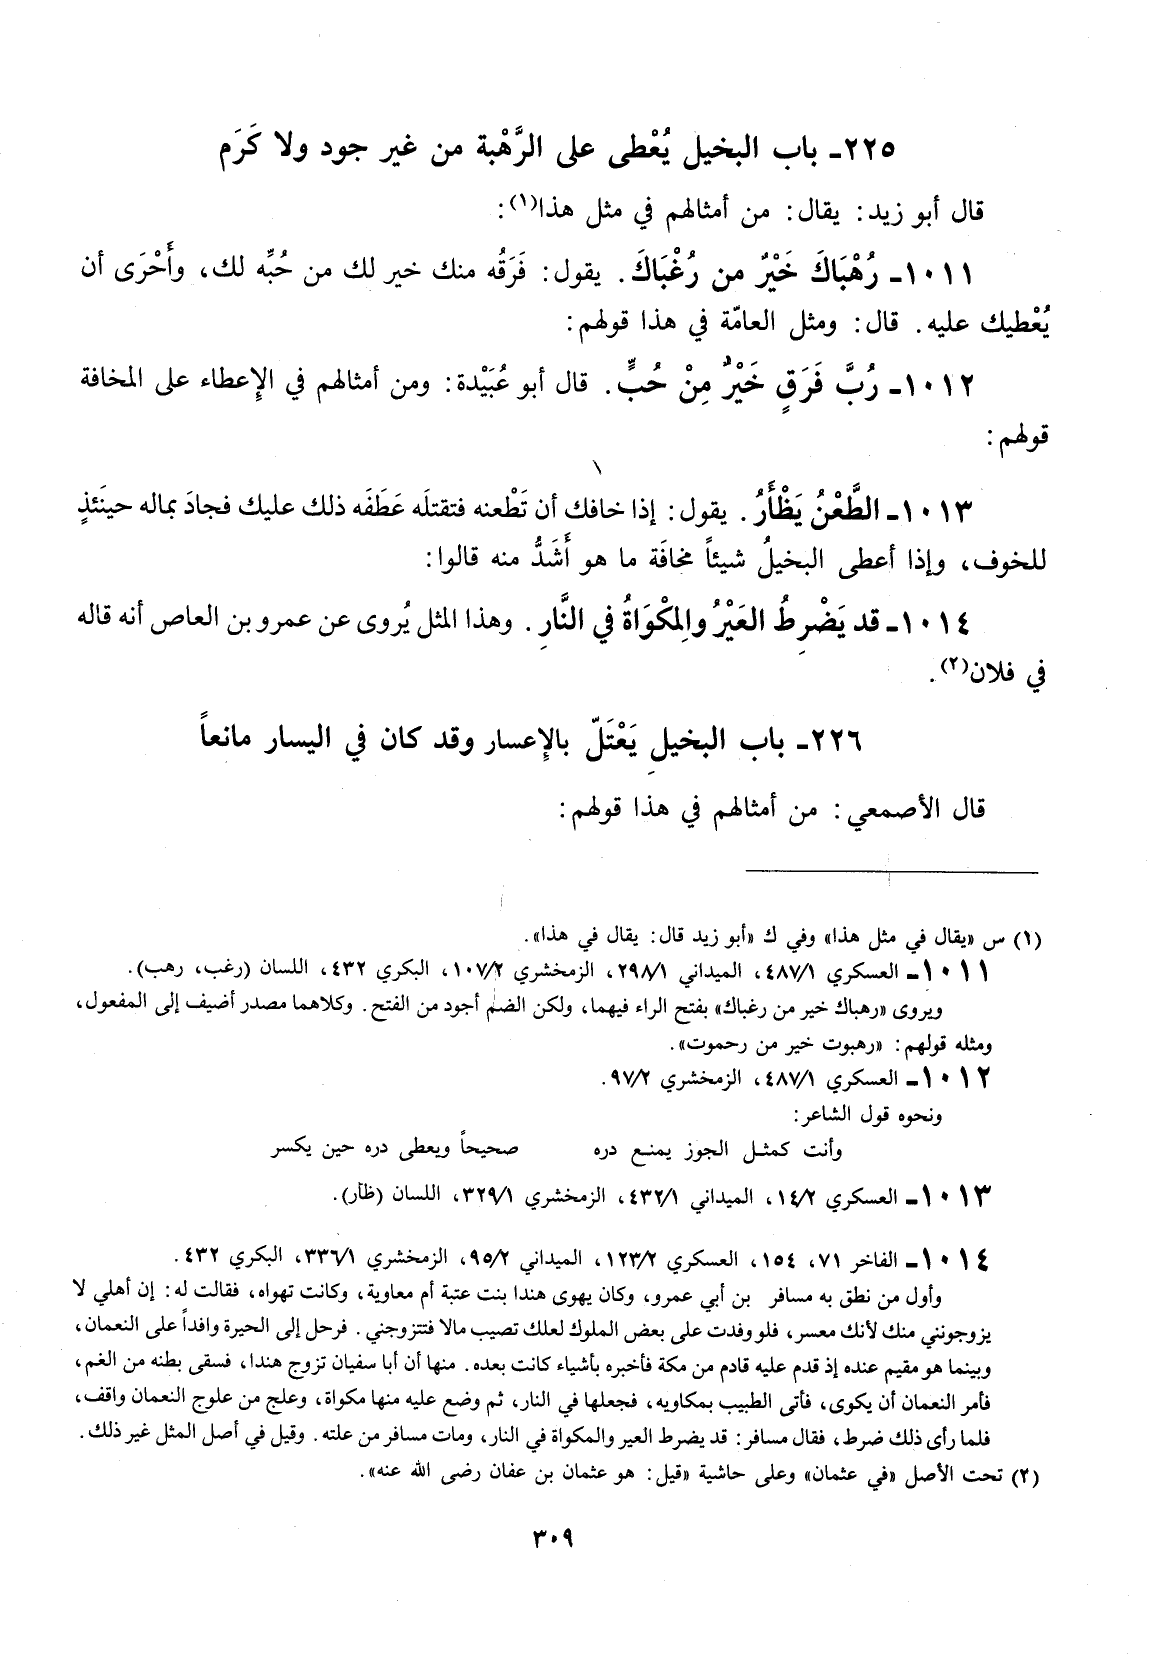 ٢٢٥ـ باب البخيل يُعْطى على الرَّهْبة من غير جود ولا كَرَم
قال أبو زيد: يقال: من أمثالهم في مثل هذا(١):
١٠١١ـ رُهْبَاكَ خَيْرٌ من رُغْبَاكَ. يقول: فَرَقُه منك خير لك من حُبِّه لك، وأَحْرَى أن
يُعْطيك عليه. قال: ومثل العامّة في هذا قولهم:
١٠١٢ـ رُبَّ فَرَقٍ خَيْرٌ مِنْ حُبٍّ. قال أبو عُبَيْدة: ومن أمثالهم في الإعطاء على المخافة
قولهم:
١٠١٣ـ الطَّعْنُ يَظْأَرُ. يقول: إذا خافك أن تَطْعنه فتقتلَه عَطَفَه ذلك عليك فجادَ بماله حينَئذٍ
للخوف، وإذا أعطى البخيلُ شيئاً مخافَة ما هو أَشَدُّ منه قالوا:
١٠١٤ـ قد يَضْرِطُ العَيْرُ والمِكْوَاةُ في النَّارِ. وهذا المثل يُروى عن عمرو بن العاص أنه قاله
في فلان(٢).
٢٢٦ـ باب البخيلِ يَعْتَلّ بالإعسار وقد كان في اليسار مانعاً
قال الأصمعي: من أمثالهم في هذا قولهم:
(١) س «يقال في مثل هذا» وفي ك «أبو زيد قال: يقال في هذا».
١٠١١ـ العسكري ٤٨٧/١، الميداني ٢٩٨/١، الزمخشري ١٠٧/٢، البكري ٤٣٢، اللسان (رغب، رهب).
ويروى «رهباك خير من رغباك» بفتح الراء فيهما، ولكن الضم أجود من الفتح. وكلاهما مصدر أضيف إلى المفعول،
ومثله قولهم: «رهبوت خير من رحموت».
١٠١٢ـ العسكري ٤٨٧/١، الزمخشري ٩٧/٢.
ونحوه قول الشاعر:
وأنت كمثل الجوز يمنع دره صحيحاً ويعطى دره حين يكسر
١٠١٣ـ العسكري ١٤/٢، الميداني ٤٣٢/١، الزمخشري ٣٢٩/١، اللسان (ظأر).
١٠١٤ـ الفاخر ٧١، ١٥٤، العسكري ١٢٣/٢، الميداني ٩٥/٢، الزمخشري ٣٣٦/١، البكري ٤٣٢.
وأول من نطق به مسافر بن أبي عمرو، وكان يهوى هندا بنت عتبة أم معاوية، وكانت تهواه، فقالت له: إن أهلي لا
يزوجونني منك لأنك معسر، فلو وفدت على بعض الملوك لعلك تصيب مالا فتتزوجني. فرحل إلى الحيرة وافداً على النعمان،
وبينما هو مقيم عنده إذ قدم عليه قادم من مكة فأخبره بأشياء كانت بعده. منها أن أبا سفيان تزوج هندا، فسقى بطنه من الغم،
فأمر النعمان أن يكوى، فأتى الطبيب بمكاويه، فجعلها في النار، ثم وضع عليه منها مكواة، وعلج من علوج النعمان واقف،
فلما رأى ذلك ضرط، فقال مسافر: قد يضرط العير والمكواة في النار، ومات مسافر من علته. وقيل في أصل المثل غير ذلك.
(٢) تحت الأصل «في عثمان» وعلى حاشية «قيل: هو عثمان بن عفان رضى الله عنه».
٣٠٩